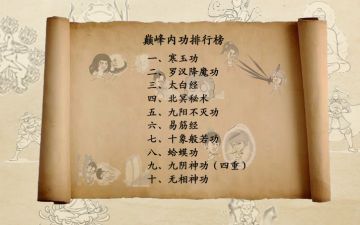 巅峰内功排行榜
一、寒玉功
二、罗汉降魔功
三、太白经
四、北冥秘术
五、九阳不灭功
六、易筋经
七、十象般若功
八、蛤蟆功
九、九阴神功（四重）
十、无相神功